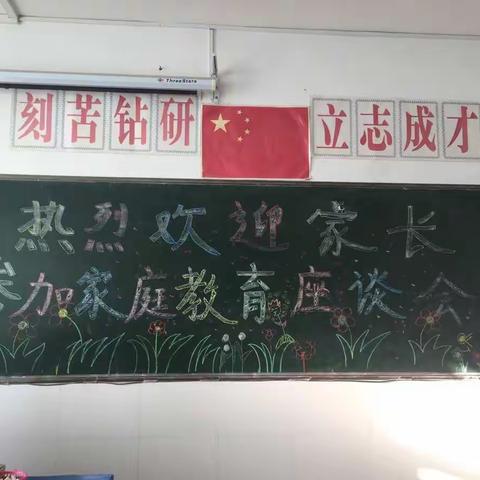 ThreeStars
刻苦钻研 立志成才
热烈欢迎家长
参加家庭教育座谈会